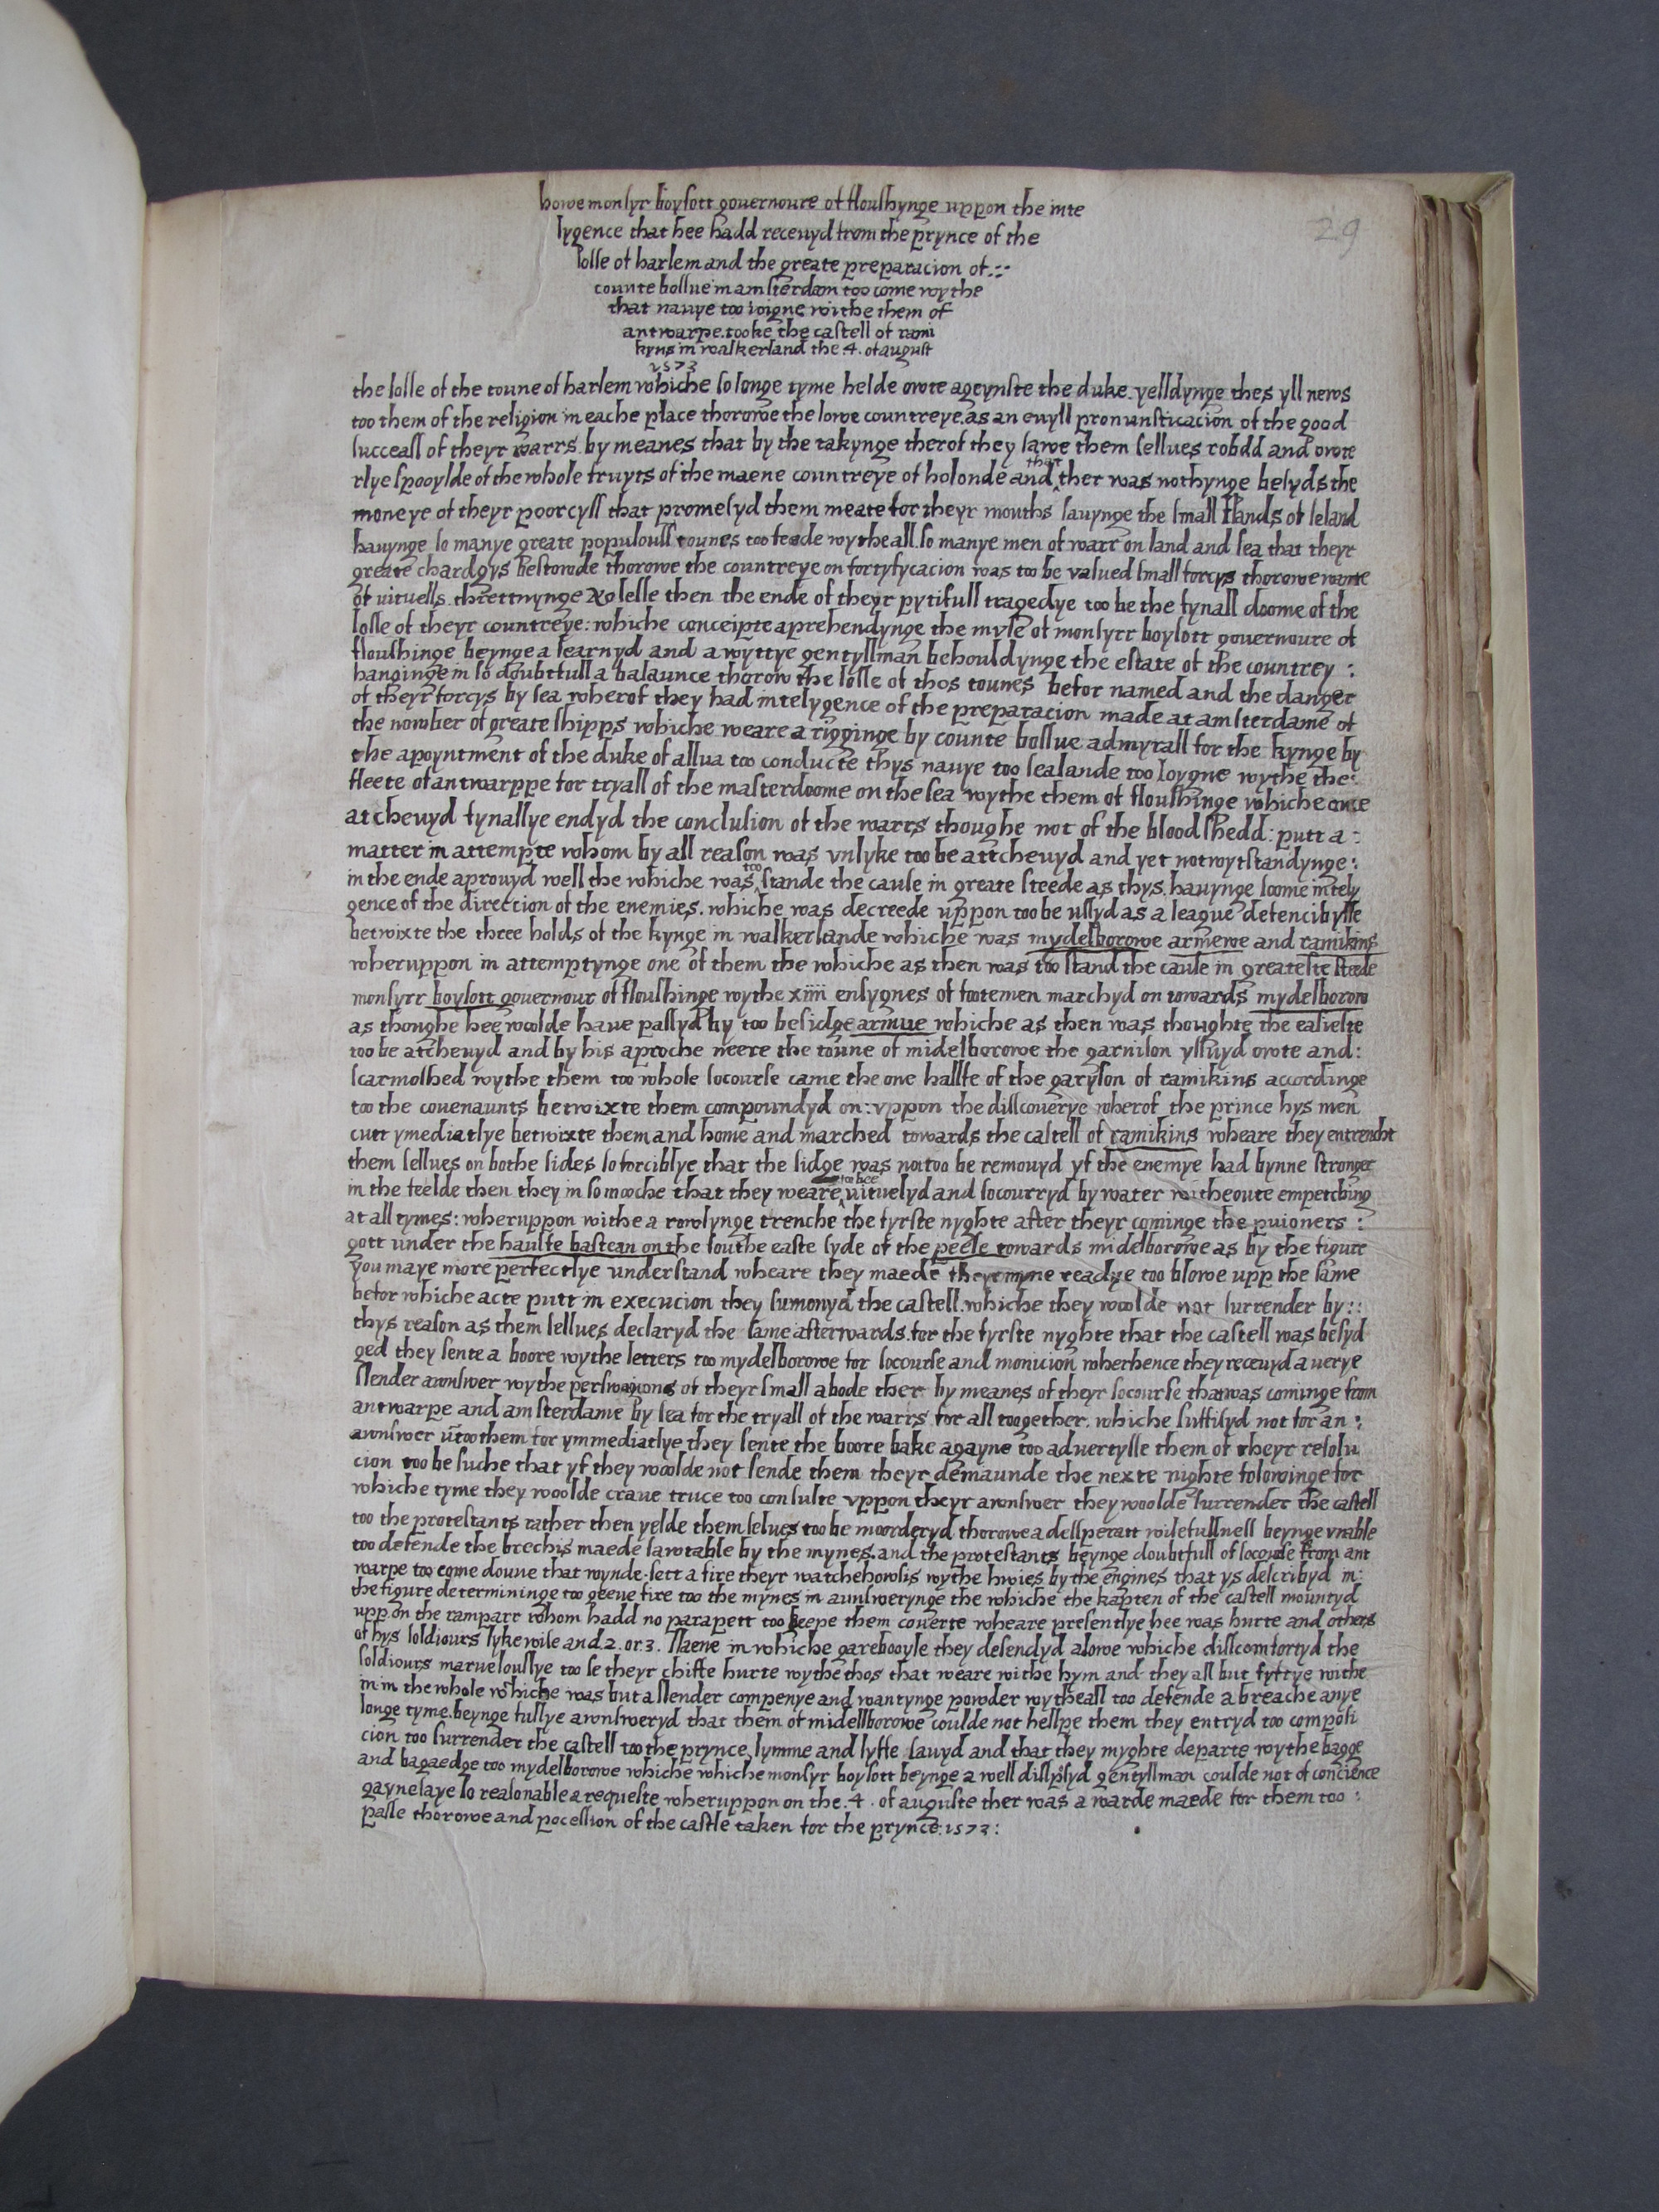 howe monsyr boysott governoure of floushynge uppon the inte
lygence that hee hadd recevyd from the prynce of the
losse of harlem and the greate preparacion of ::
counte bossue in amsterdam too come wythe
that navye too ioigne withe them of
antwarpe. tooke the castell of rami
kyns in walkerland the .4. of august
1573
the losse of the toune of harlem whiche so longe tyme helde owte ageynste the duke. yelldynge thes yll news
too them of the religion in eache place thorowe the lowe countreye. as an evyll pronunsticacion of the good
succeass of theyr warrs. by meanes that by the takynge therof they sawe them sellues robdd and owte
rlye spooylde of the whole fruyts of the maene countreye of holonde and that ther was nothynge besyds the
moneye of theyr poorcyss that promesyd them meate for theyr mouths savynge the small Ilands of seland
havynge so manye greate populouss tounes too feede wytheall. so manye men of warr on land and sea that theyr
greate chardgys bestowde thorowe the countreye on fortyfycacion was too be valued small forcys thorowe wante
of vituells. threttnynge no lesse then the ende of theyr pytifull tragedye too be the fynall doome of the
losse of theyr countreye: whiche conceipte aprehendynge the myse of monsyrr boysott governoure of
floushinge beynge a learnyd and a wyttye gentyllman behouldynge the estate of the countrey :
hanginge in so doubtfull a balaunce thorow the losse of thos tounes befor named and the danger
of theyr forcys by sea wherof they had intelygence of the preparacion made at amsterdame of
the nomber of greate shipps whiche weare a rigginge by counte bossue admyrall for the kynge by
the apoyntment of the duke of allua too conducte thys navye too sealande too Ioygne wythe the:
fleete of antwarppe for tryall of the masterdoome on the sea wythe them of floushinge whiche once
atchevyd fynallye endyd the conclusion of the warrs thoughe not of the bloodshedd: putt a :
matter in attempte whom by all reason was vnlyke too be attchevyd and yet notwytstandynge :
in the ende aprouyd well the whiche was too stande the cause in greate steede as thys. havynge soome intely
gence of the direction of the enemies. whiche was decreede uppon too be ussyd as a league defencibylle
betwixte the three holds of the kynge in walkerlande whiche was mydelborowe armewe and ramikins
wheruppon in attemptynge one of them the whiche as then was too stand the cause in greateste steede
monsyrr boysott governour of floushinge wythe xiiii ensygnes of footemen marchyd on towards mydelborow
as thoughe hee woolde have passyd by too besidge armue whiche as then was thoughte the easieste
too be atchevyd and by his aproche neere the toune of midelborowe the garnison yssuyd owte and :
scarmoshed wythe them too whose socourse came the one hallfe of the garyson of ramikins accordinge
too the covenaunts betwixte them compoundyd on: vppon the disscouerye wherof the prince hys men
cutt ymediatlye betwixte them and home and marched towards the castell of ramikins wheare they entrencht
them sellues on bothe sides so forciblye that the sidge was not too be removyd yf the enemye had bynne stronger
in the feelde then they in so mooche that they weare too bee vituelyd and socourryd by water witheoute empetching
at all tymes: wheruppon withe a rowlynge trenche the fyrste nyghte after theyr cominge the puioners :
gott under the haulfe bastean on the southe easte syde of the peese towards midelborowe as by the figure
you maye more perfectlye understand wheare they maede theyr myne readye too blowe upp the same
befor whiche acte putt in execucion they sumonyd the castell. whiche they woolde not surrender by ::
thys reason as them sellues declaryd the same afterwards. for the fyrste nyghte that the castell was besyd
ged they sente a boore wythe letters too mydelborowe for socourse and monicion wherhence they recevyd a verye
slender awnswer wythe perswayions of theyr small abode ther by meanes of theyr socourse that was cominge from
antwarpe and amsterdame by sea for the tryall of the warrs for all toogether. whiche suffisyd not for an :
awnswer untoo them for ymmediatlye they sente the boore bake agayne too advertysse them of theyr resolu
cion too be suche that yf they woolde not sende them theyr demaunde the nexte nighte folowinge for
whiche tyme they woolde crave truce too consulte vppon theyr awnswer they woolde surrender the castell
too the protestants rather then yelde themselues too be moorderyd thorowe a dessperatt willefullness beynge vnable
too defende the brechis maede sawtable by the mynes. and the protestants beynge doubtfull of socourse from ant
warpe too come doune that wynde. sett a fire theyr watchehowsis wythe hwies by the engines that ys describyd in :
the figure determininge too geeve fire too the mynes in aunswerynge the whiche the kapten of the castell mountyd
upp on the rampart whom hadd no parapett too keepe them coverte wheare presentlye hee was hurte and others
of hys soldiours lykewise and .2. or .3. slaene in whiche garebooyle they desendyd alowe whiche disscomfortyd the
soldiours marvelouslye too se theyr chiffe hurte wythe thos that weare withe hym and they all but fyftye withe
in in the whole whiche was but a slender compenye and wantynge powder wytheall too defende a breache anye
longe tyme. beynge fullye awnsweryd that them of midellborowe coulde not hellpe them they entryd too composi
cion too surrender the castell too the prynce lymme and lyffe savyd and that they myghte departe wythe bagge
and bagaedge too mydelborowe whiche whiche monsyr boysott beynge a well dissposyd gentyllman coulde not of concience
gaynesaye so reasonable a requeste wheruppon on the .4. of auguste ther was a warde maede for them too :
passe thorowe and pocession of the castle taken for the prynce: 1573 :
29